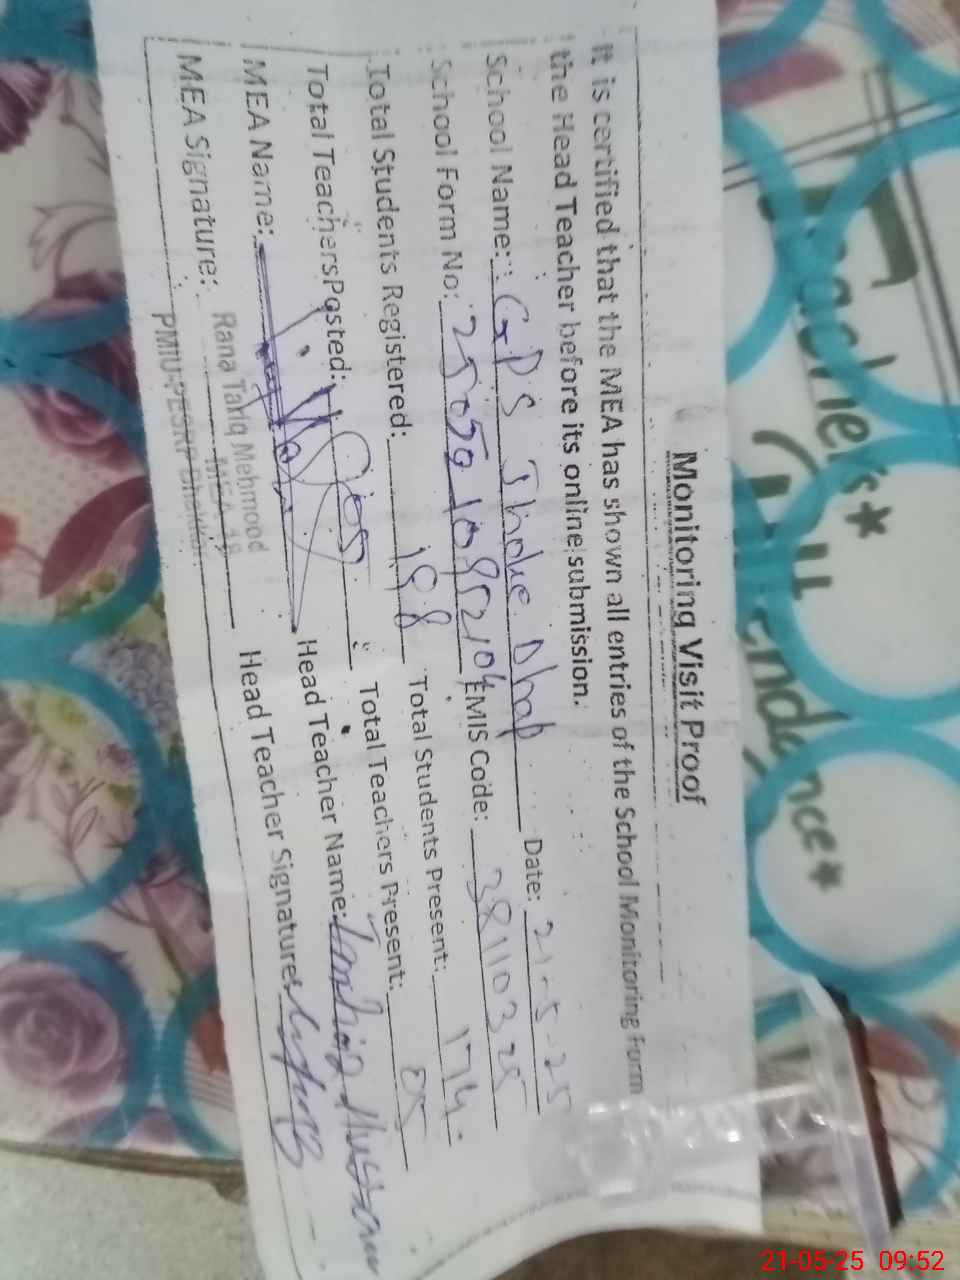 Monitoring Visit Proof
It is certified that the MEA has shown all entries of the School Monitoring Form
the Head Teacher before its online submission.
School Name: GPS Dhab Date: 21-5-25
School Form No: EMIS Code: 38110325
Total Students Registered: 198 Total Students Present: 174
Total Teachers Posted: Total Teachers Present: 05
MEA Name: Head Teacher Name:
MEA Signature: Head Teacher Signature:
Rana Tariq Mehmood
MEA-19
PMIU-PESRP
Teachers*
*
21-05-25 09:52